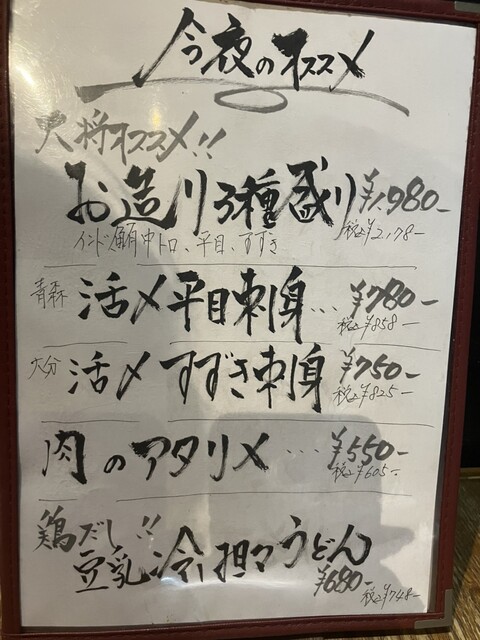 今夜のオススメ
大将オススメ!!
お造り3種盛り ¥1,980-
税込¥2,178-
インド鮪中トロ、平目、すずき
青森 活〆平目刺身… ¥780-
税込¥858-
大分 活〆すずき刺身 ¥750-
税込¥825-
肉のアタリメ … ¥550-
税込¥605-
鶏だし!!
豆乳冷担々うどん
¥680-
税込¥748-